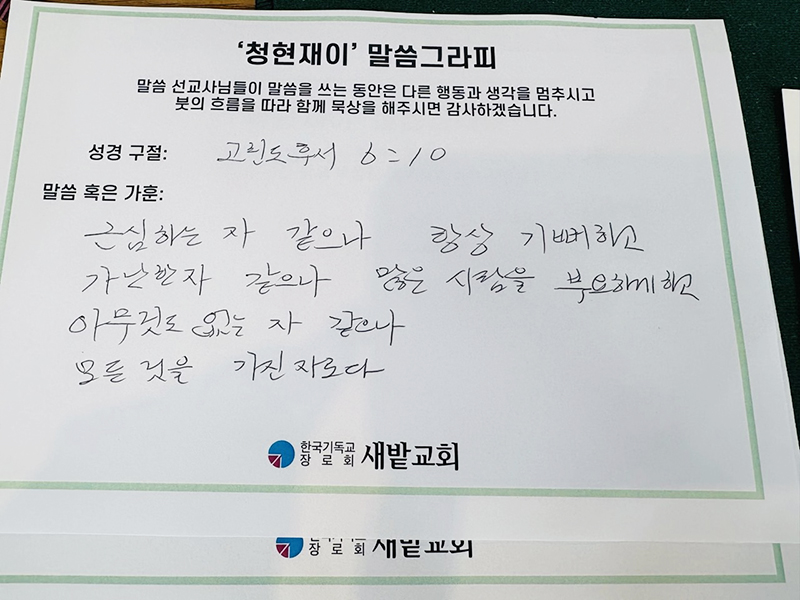 ‘청현재이’ 말씀그라피
말씀 선교사님들이 말씀을 쓰는 동안은 다른 행동과 생각을 멈추시고
붓의 흐름을 따라 함께 묵상을 해주시면 감사하겠습니다.
성경 구절: 고린도후서 6:10
말씀 혹은 가훈:
근심하는 자 같으나 항상 기뻐하고
가난한자 같으나 많은 사람을 부요하게하고
아무것도 없는 자 같으나
모든 것을 가진자로다
한국기독교
장로회 새밭교회
장로회 새밭교회